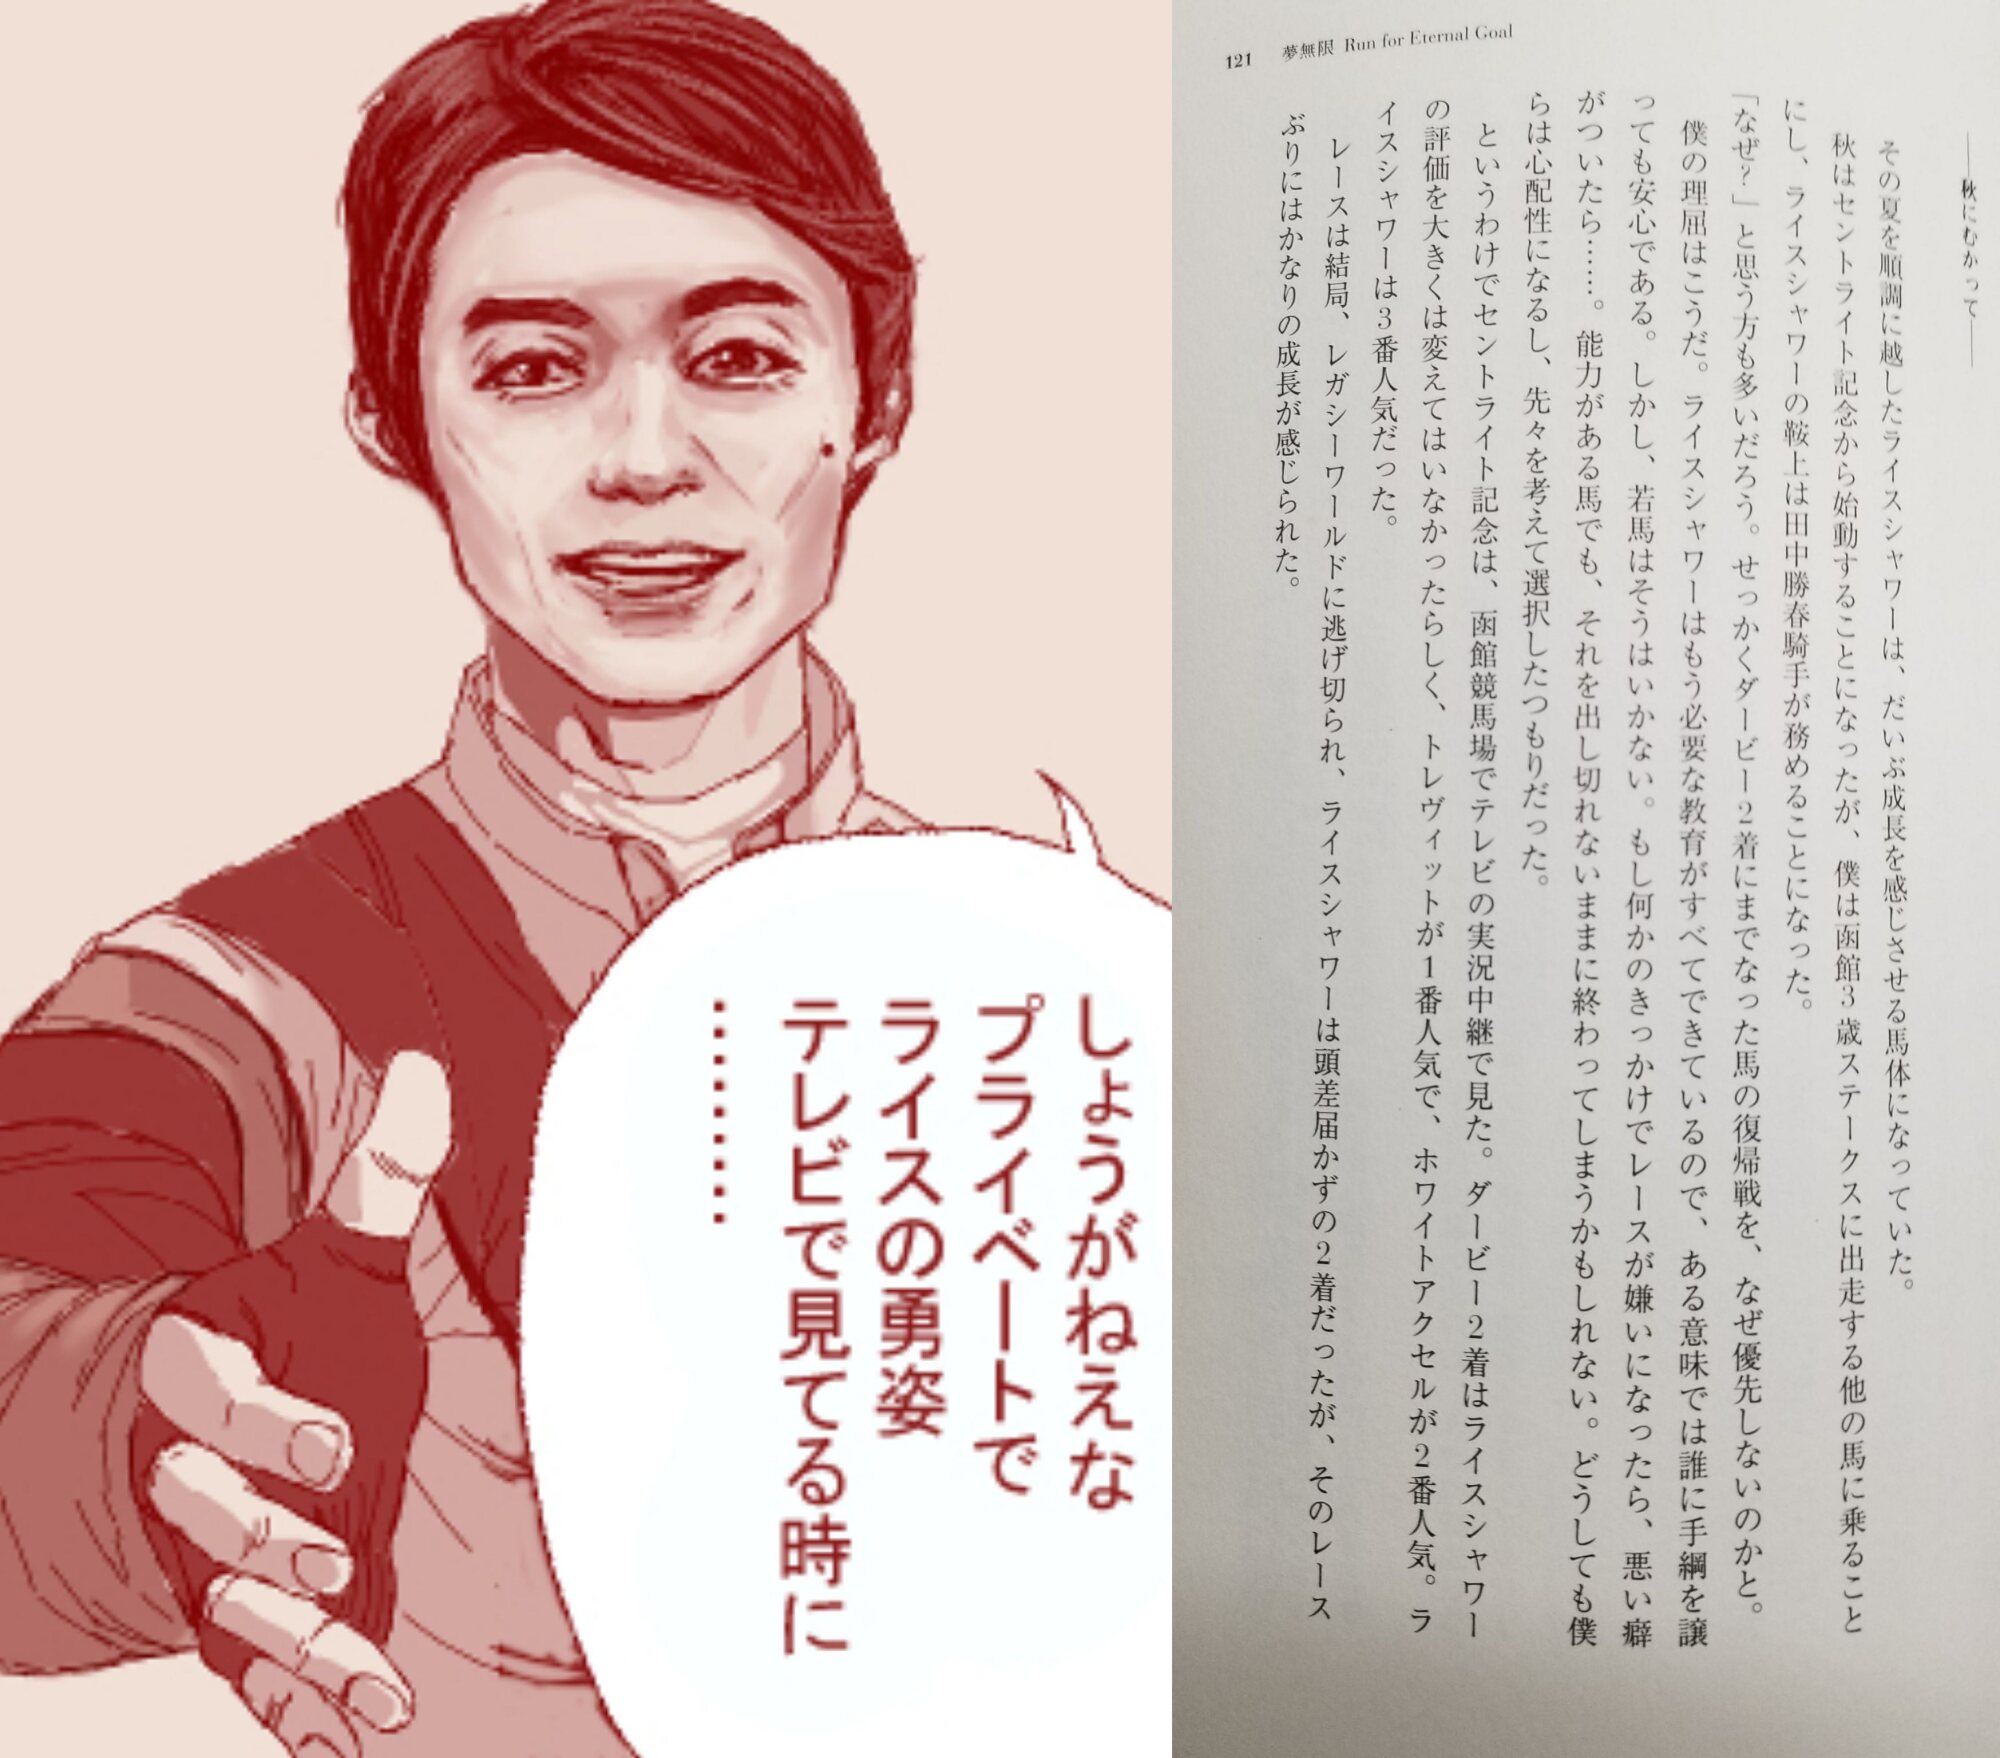 しょうがねえな
プライベートで
ライスの勇姿
テレビで見てる時に
………
121 夢無限 Run for Eternal Goal
――秋にむかって――
その夏を順調に越したライスシャワーは、だいぶ成長を感じさせる馬体になっていた。
秋はセントライト記念から始動することになったが、僕は函館3歳ステークスに出走する他の馬に乗ること
にし、ライスシャワーの鞍上は田中勝春騎手が務めることになった。
「なぜ？」と思う方も多いだろう。せっかくダービー2着にまでなった馬の復帰戦を、なぜ優先しないのかと。
僕の理屈はこうだ。ライスシャワーはもう必要な教育がすべてできているので、ある意味では誰に手綱を譲
っても安心である。しかし、若馬はそうはいかない。もし何かのきっかけでレースが嫌いになったら、悪い癖
がついたら……。能力がある馬でも、それを出し切れないままに終わってしまうかもしれない。どうしても僕
らは心配性になるし、先々を考えて選択したつもりだった。
というわけでセントライト記念は、函館競馬場でテレビの実況中継で見た。ダービー2着はライスシャワー
の評価を大きくは変えてはいなかったらしく、トレヴィットが1番人気で、ホワイトアクセルが2番人気。ラ
イスシャワーは3番人気だった。
レースは結局、レガシーワールドに逃げ切られ、ライスシャワーは頭差届かずの2着だったが、そのレース
ぶりにはかなりの成長が感じられた。